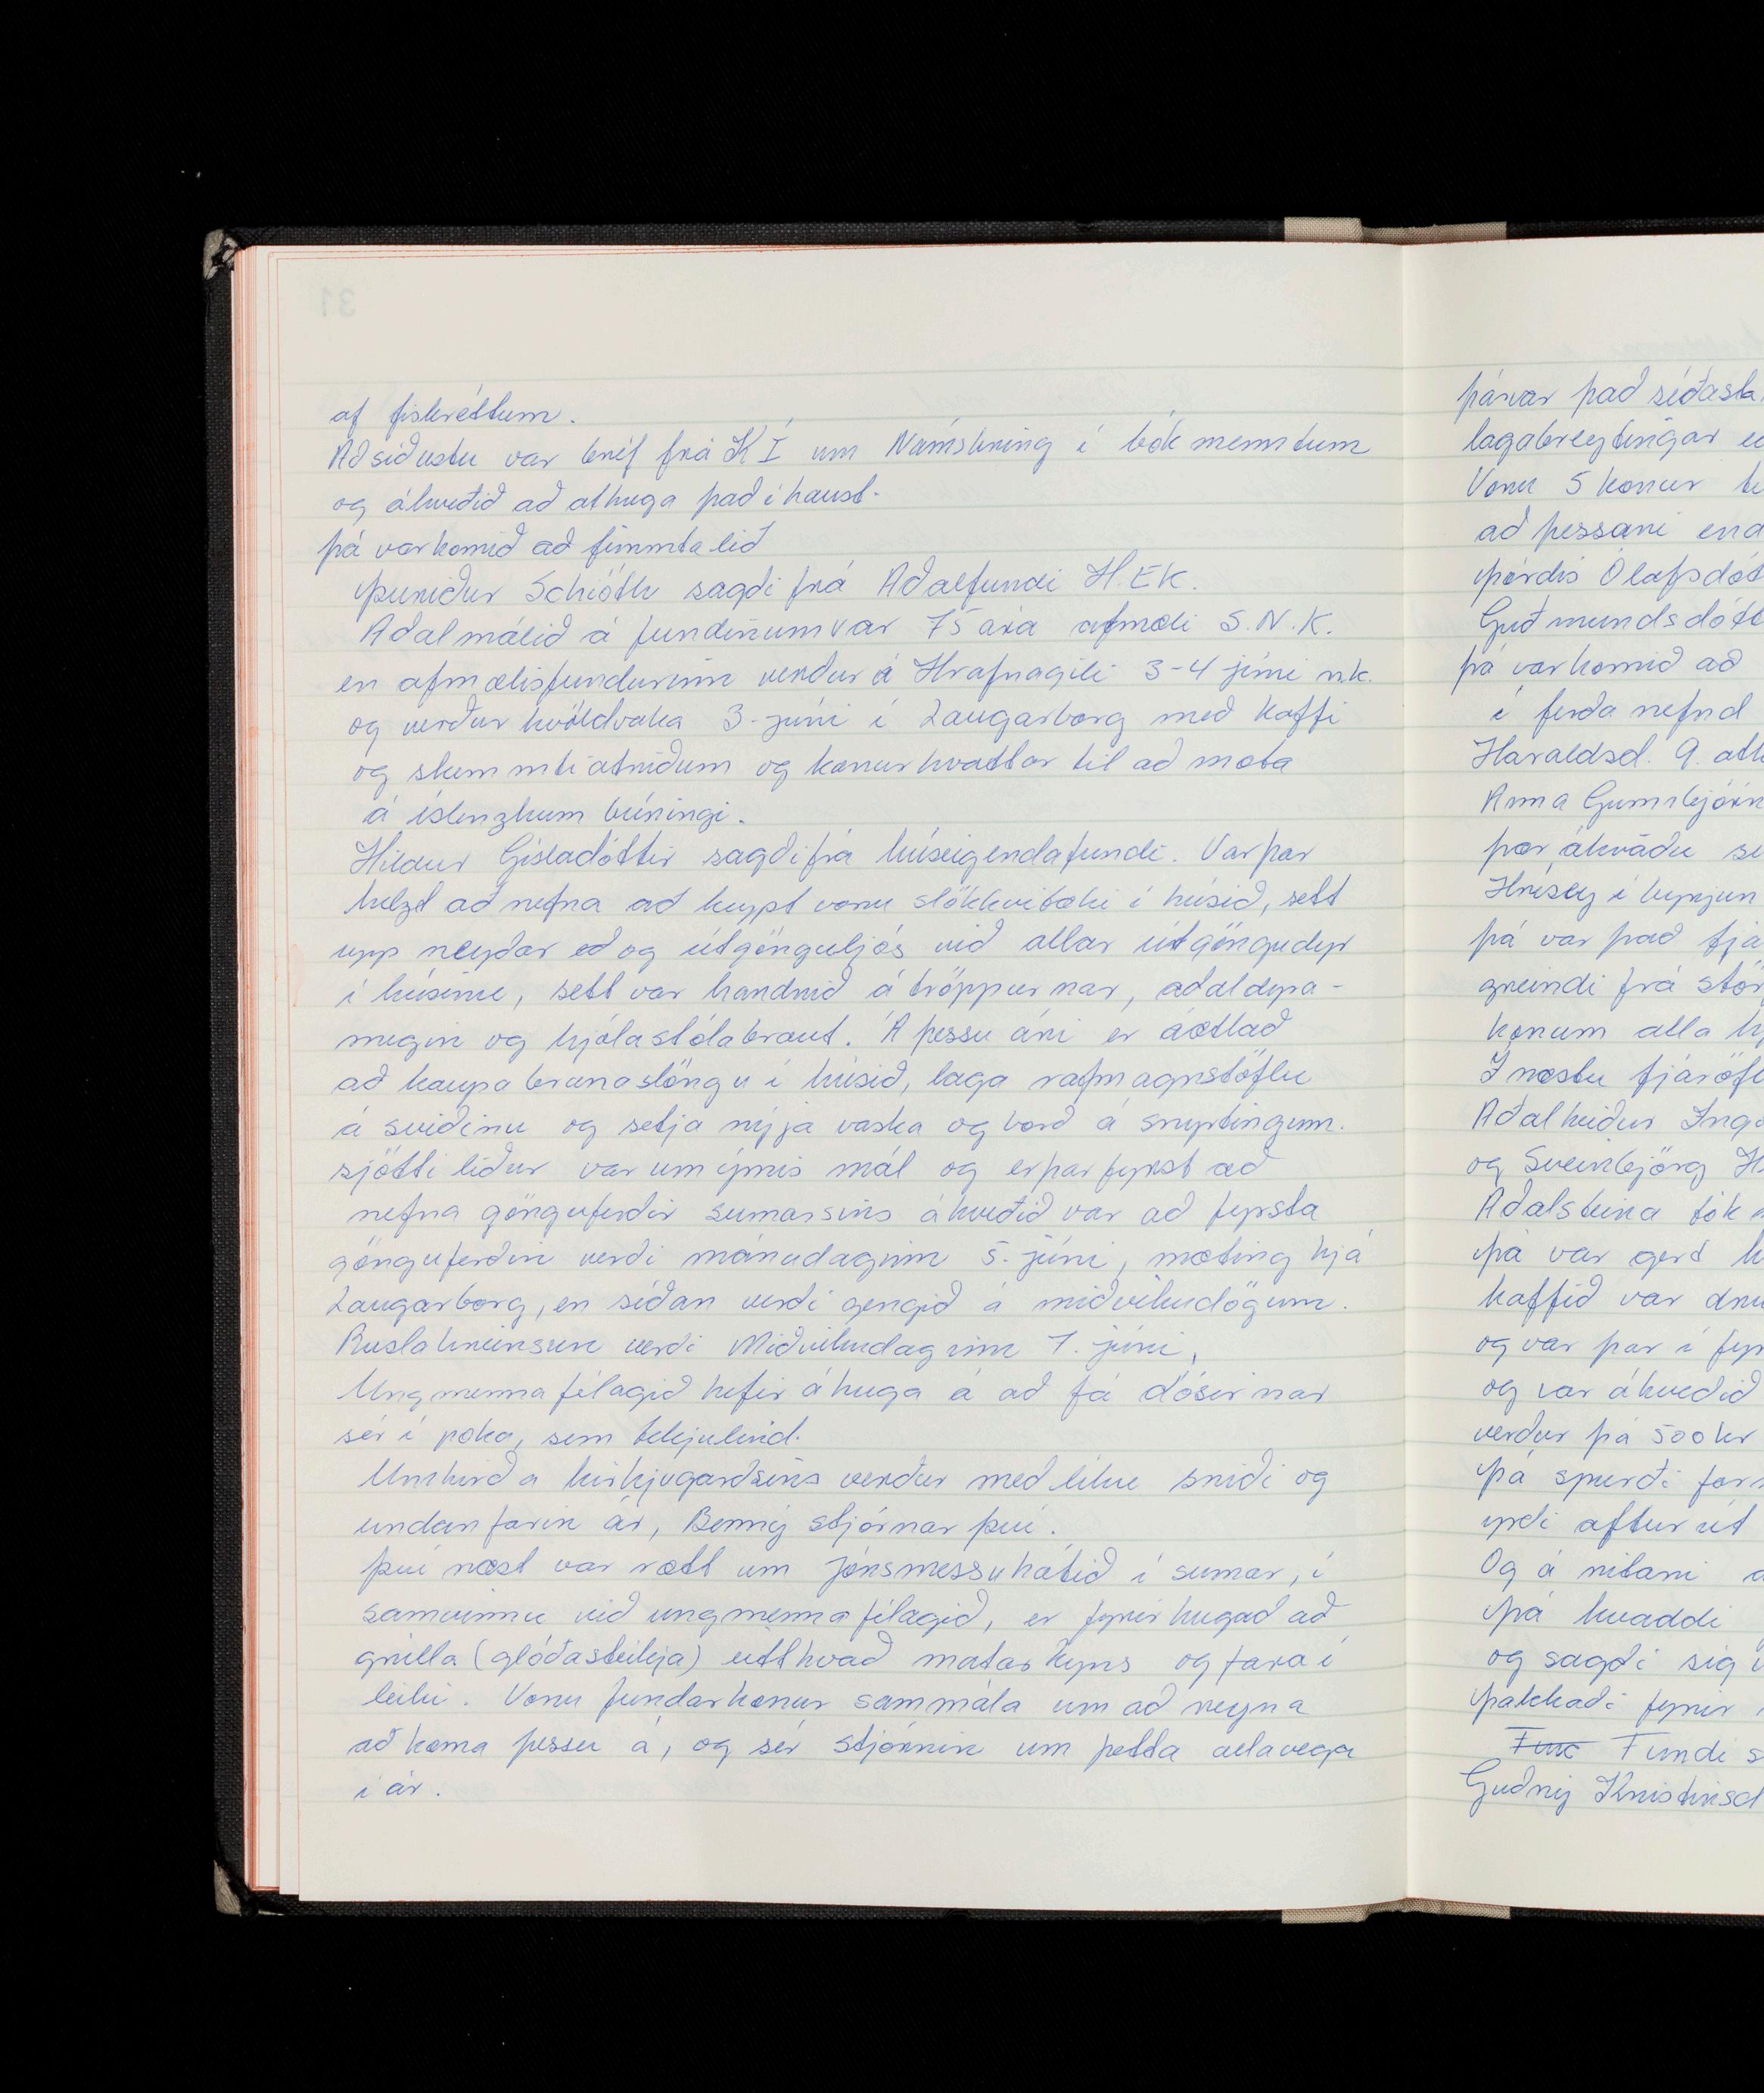 af fiskréttum.
Að síðustu var bréf frá KÍ um Námshring í bókmenntum
og ákveðið að athuga það í haust.
þá var komið að fimmta lið
Þuríður Schiöth sagði frá Aðalfundi H.E.K.
Aðalmálið á fundinum var 75 ára afmæli S.N.K.
en afmælisfundurinn verður á Hrafnagili 3-4 júní n.k.
og verður kvöldvaka 3. júní í Laugarborg með kaffi
og skemmtiatriðum og konur hvattar til að mæta
á íslenzkum búningi.
Hildur Gísladóttir sagði frá húseigendafundi. Var þar
helzt að nefna að keypt voru slökkvitæki í húsið, sett
upp neyðar og útgönguljós við allar útgöngudyr
í húsinu, sett var handrið á tröppurnar, aðaldyra-
megin og hjólastólabraut. Á þessu ári er áætlað
að kaupa brunaslöngu í húsið, laga rafmagnstöflu
á sviðinu og setja nýja vaska og borð á snyrtingum.
sjötti liður var um ýmis mál og er þar fyrst að
nefna gönguferðir sumarsins ákveðið var að fyrsta
gönguferðin verði mánudaginn 5. júní, mæting hjá
Laugarborg, en síðan verði gengið á miðvikudögum.
Ruslahreinsun verði Miðvikudaginn 7. júní,
Ungmennafélagið hefir áhuga á að fá dósirnar
sér í poka, sem tekjulind.
Umhirða kirkjugarðsins verður með líku sniði og
undanfarin ár, Benný stjórnar því.
því næst var rætt um Jónsmessuhátíð í sumar, í
samvinnu við ungmennafélagið, er fyrirhugað að
grilla (glóðasteikja) eitthvað matarkyns og fara í
leiki. Voru fundarkonur sammála um að reyna
að koma þessu á, og sér stjórnin um þetta allavega
í ár.
þá var það síðasta
lagabreytingar
Voru 5 konur
að þessari
Þórdís Ólafsdót
Guðmundsdótt
þá var komið að
í ferða nefnd
Haraldsd.
Anna Gunnbjörn
þær ákváðu
Hrísey í byrjun
þá var það fjá
greindi frá stör
konum alla
Í næstu fjáröfl
Aðalheiður Ingo
og Sveinbjörg H
Aðalsteina tók
Þá var gert
kaffið var
og var þar í fyr
og var ákveðið
verður þá 500 kr
Þá spurði for
yrði aftur út
Og á nítani
Þá kvaddi
og sagði sig
Þakkaði fyrir
Func Fundi s
Guðný Kristinsd